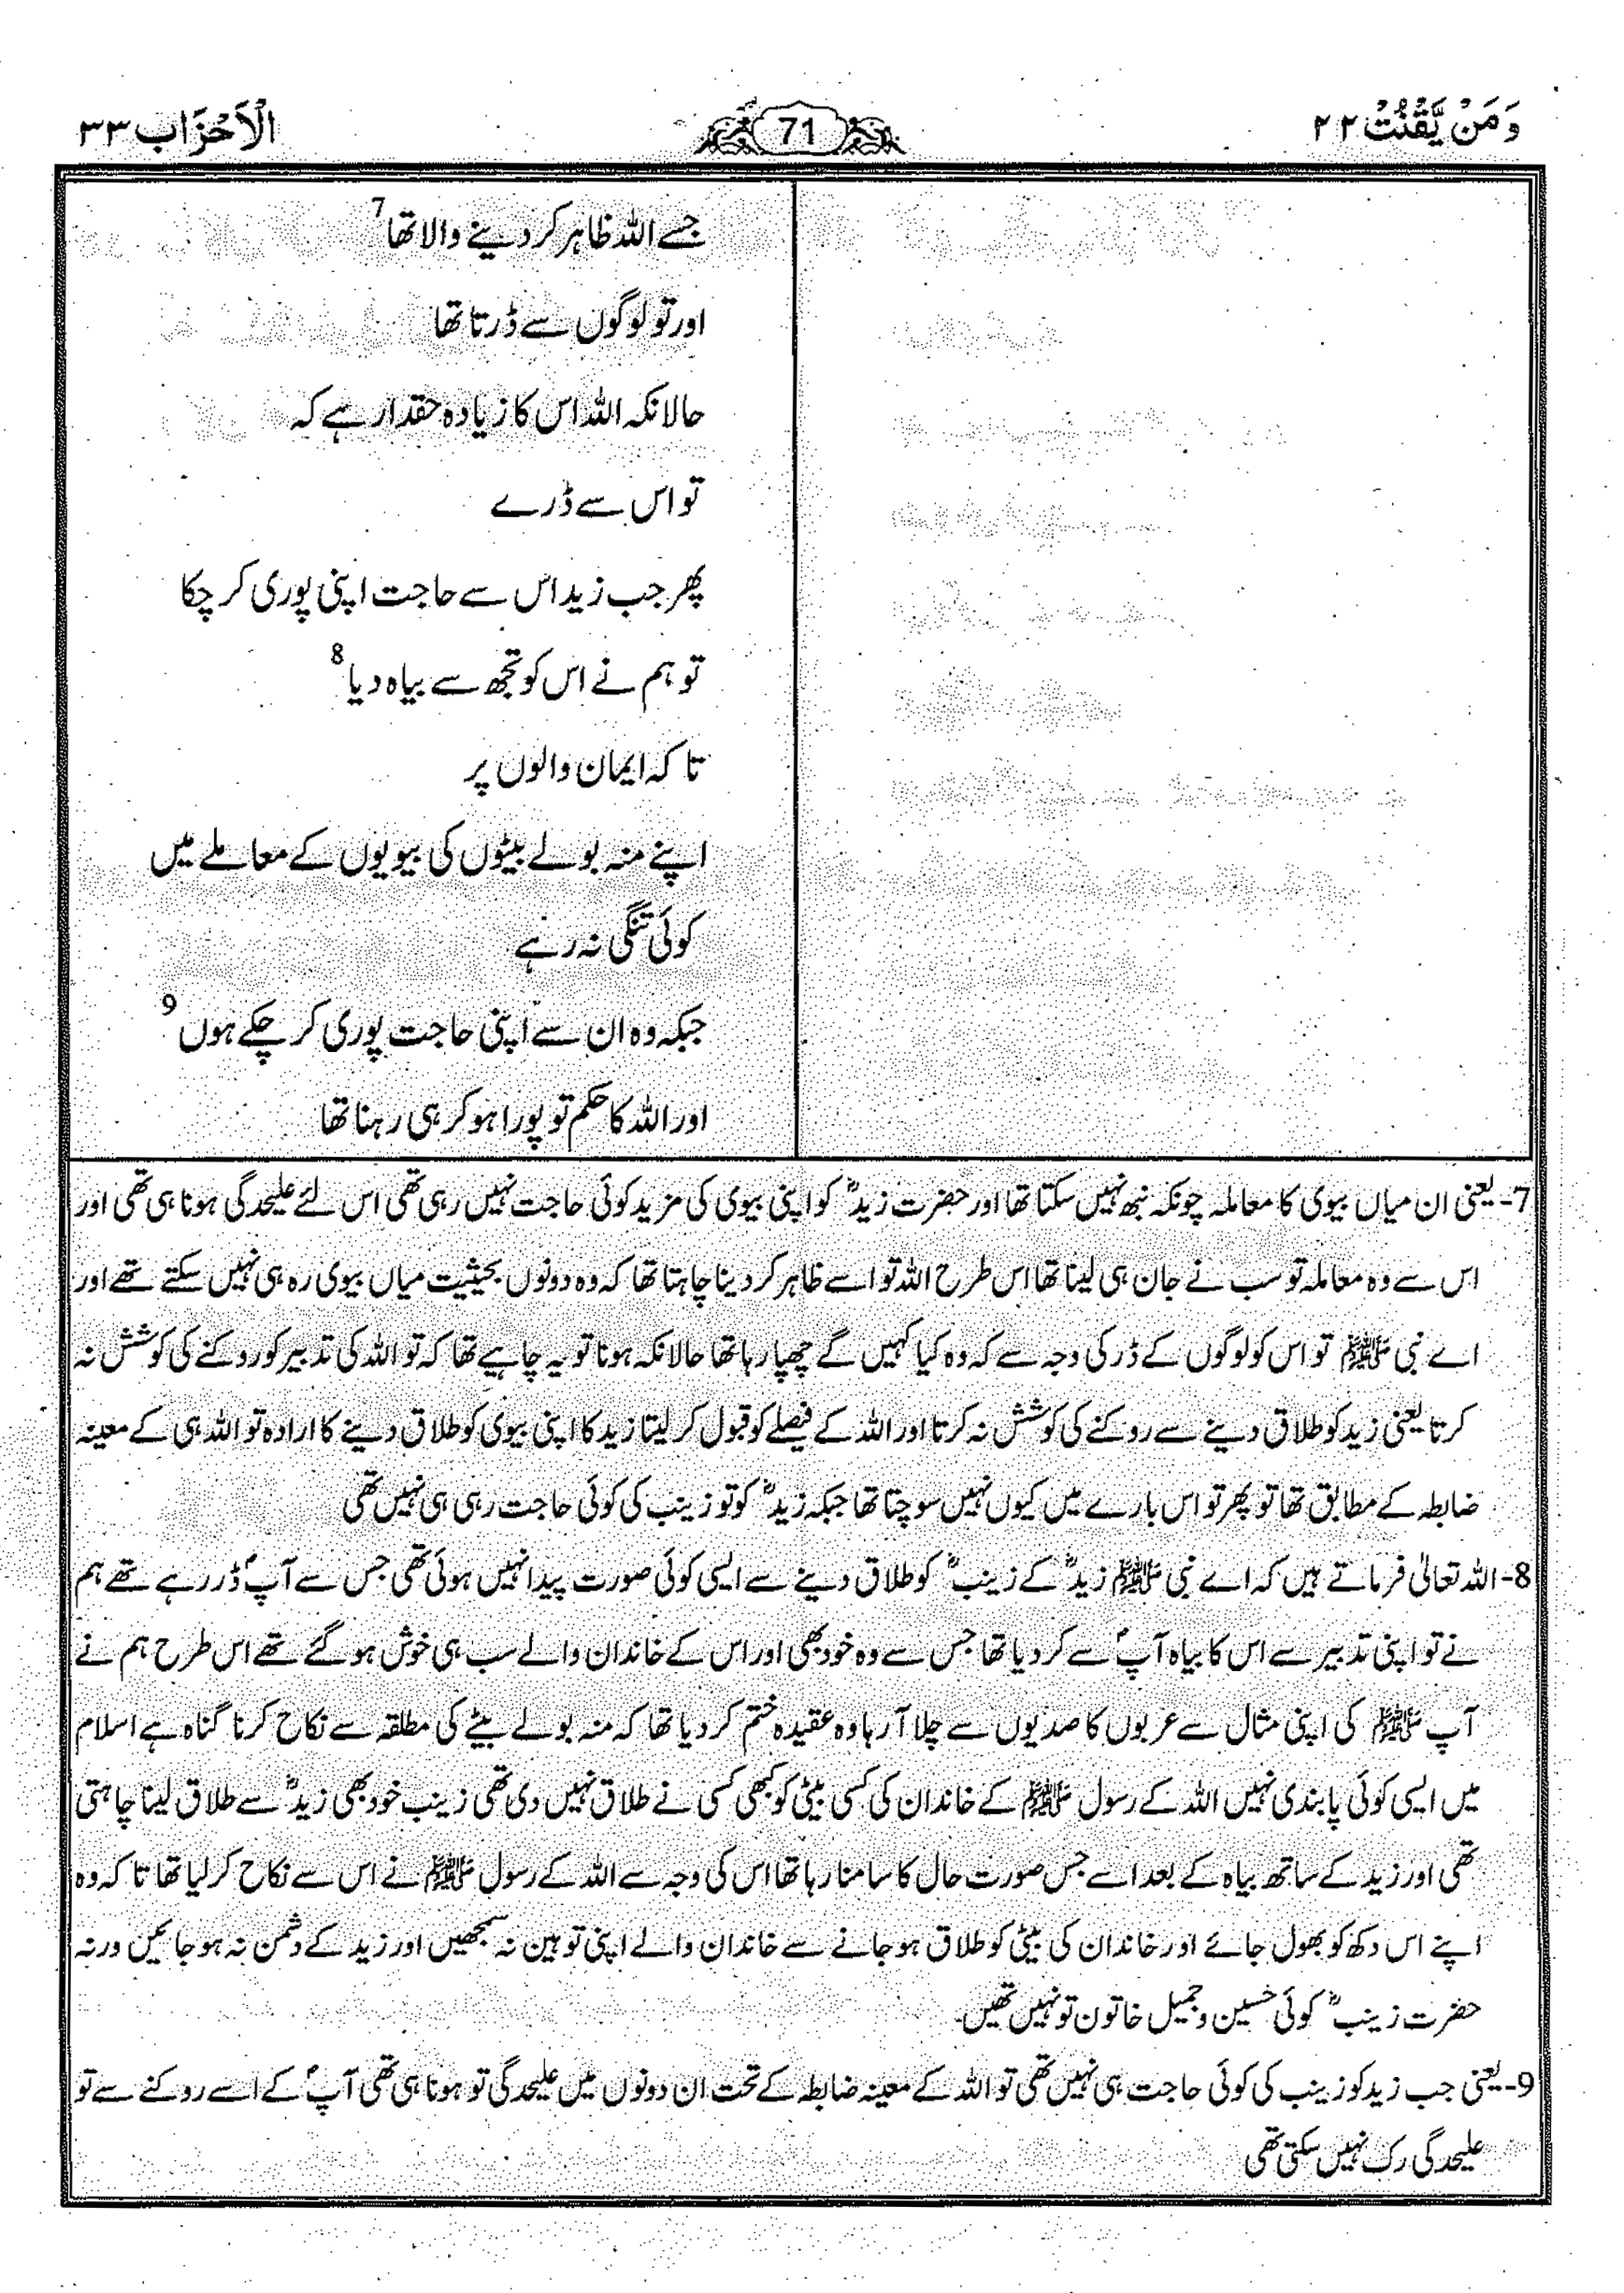 وَمَنْ يَّقْنُتْ ٢٢
71
الْاَحْزَاب ٣٣
جسے اللہ ظاہر کر دینے والا تھا 7
اور تو لوگوں سے ڈرتا تھا
حالانکہ اللہ اس کا زیادہ حقدار ہے کہ
تو اس سے ڈرے
پھر جب زید اس سے حاجت اپنی پوری کر چکا
تو ہم نے اس کو تجھ سے بیاہ دیا 8
تا کہ ایمان والوں پر
اپنے منہ بولے بیٹوں کی بیویوں کے معاملے میں
کوئی تنگی نہ رہے
جبکہ وہ ان سے اپنی حاجت پوری کر چکے ہوں 9
اور اللہ کا حکم تو پورا ہو کر ہی رہنا تھا
7- یعنی ان میاں بیوی کا معاملہ چونکہ نبھ نہیں سکتا تھا اور حضرت زیدؓ کو اپنی بیوی کی مزید کوئی حاجت نہیں رہی تھی اس لئے علیحدگی ہونا ہی تھی اور
اس سے وہ معاملہ تو سب نے جان ہی لینا تھا اس طرح اللہ تو اسے ظاہر کر دینا چاہتا تھا کہ وہ دونوں بحیثیت میاں بیوی رہ ہی نہیں سکتے تھے اور
اے نبی ﷺ تو اس کو لوگوں کے ڈر کی وجہ سے کہ وہ کیا کہیں گے چھپا رہا تھا حالانکہ ہونا تو یہ چاہیے تھا کہ تو اللہ کی تدبیر کو روکنے کی کوشش نہ
کرتا یعنی زید کو طلاق دینے سے روکنے کی کوشش نہ کرتا اور اللہ کے فیصلے کو قبول کر لیتا زید کا اپنی بیوی کو طلاق دینے کا ارادہ تو اللہ ہی کے معینہ
ضابطہ کے مطابق تھا تو پھر تو اس بارے میں کیوں نہیں سوچتا تھا جبکہ زیدؓ کو تو زینب کی کوئی حاجت رہی ہی نہیں تھی
8- اللہ تعالیٰ فرماتے ہیں کہ اے نبی ﷺ زیدؓ کے زینبؓ کو طلاق دینے سے ایسی کوئی صورت پیدا نہیں ہوئی تھی جس سے آپؐ ڈر رہے تھے ہم
نے تو اپنی تدبیر سے اس کا بیاہ آپؐ سے کر دیا تھا جس سے وہ خود بھی اور اس کے خاندان والے سب ہی خوش ہو گئے تھے اس طرح ہم نے
آپ ﷺ کی اپنی مثال سے عربوں کا صدیوں سے چلا آ رہا وہ عقیدہ ختم کر دیا تھا کہ منہ بولے بیٹے کی مطلقہ سے نکاح کرنا گناہ ہے اسلام
میں ایسی کوئی پابندی نہیں اللہ کے رسول ﷺ کے خاندان کی کسی بیٹی کو کبھی کسی نے طلاق نہیں دی تھی زینب خود بھی زیدؓ سے طلاق لینا چاہتی
تھی اور زید کے ساتھ بیاہ کے بعد اسے جس صورت حال کا سامنا رہا تھا اس کی وجہ سے اللہ کے رسول ﷺ نے اس سے نکاح کر لیا تھا تا کہ وہ
اپنے اس دکھ کو بھول جائے اور خاندان کی بیٹی کو طلاق ہو جانے سے خاندان والے اپنی توہین نہ سمجھیں اور زید کے دشمن نہ ہو جائیں ورنہ
حضرت زینبؓ کوئی حسین و جمیل خاتون تو نہیں تھیں۔
9- یعنی جب زید کو زینب کی کوئی حاجت ہی نہیں تھی تو اللہ کے معینہ ضابطہ کے تحت ان دونوں میں علیحدگی تو ہونا ہی تھی آپؐ کے اسے روکنے سے تو
علیحدگی رک نہیں سکتی تھی